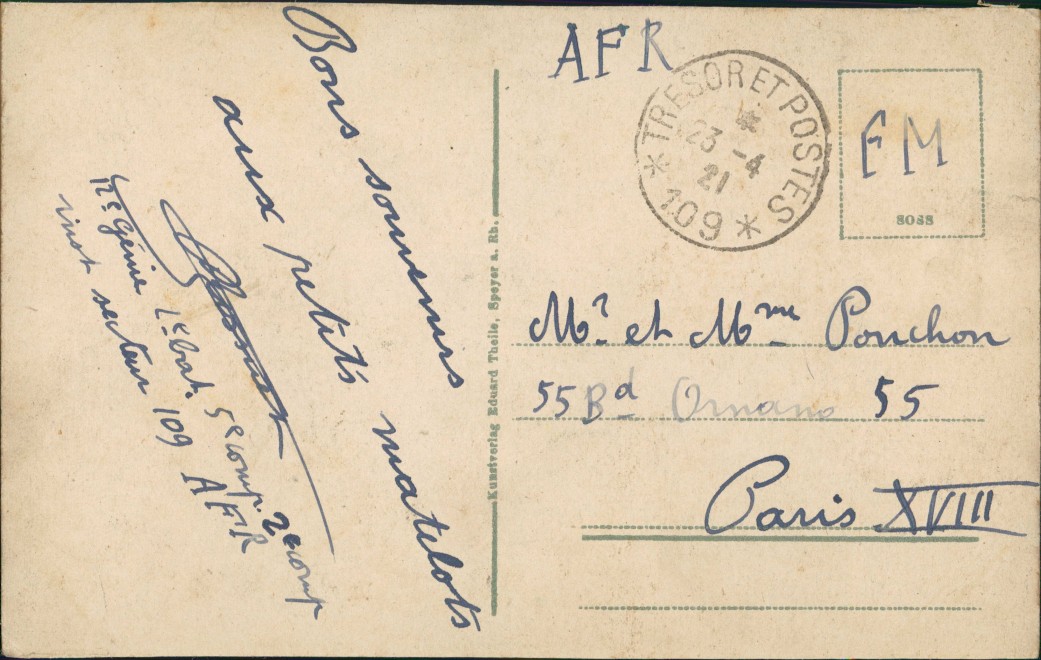 Bons souvenirs
aux petits matelots
Génie 1er bat. 5e comp. 2e comp
inst secteur 109 AFR
Kunstverlag Eduard Theile, Speyer a. Rh.
AFR
* TRESOR ET POSTES *
23 - 4
21
109
FM
8088
Mr. et Mme Ponchon
55 Bd Ornano 55
Paris XVIII